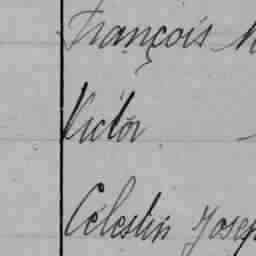 François
Victor
Célestin Joseph